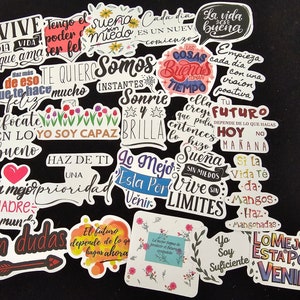 VIVE
LA VIDA
que ama
Tengo el
poder
ser
feliz
sueña
sin
miedo
Cada día
ES UN NUEVO
comienzo
La vida
es
buena
Haz más
de eso
que te hace
feliz
TE QUIERO
MUCHO
Somos
INSTANTES
LAS
COSAS
Buenas
TIEMPO
Empieza
cada día
con una
visión
positiva
EN LO
bueno
YO SOY CAPAZ
Sonríe
y
BRILLA
Ella
que
podía
entonces
hizo
FUTURO
DEPENDE DE LO QUE HAGAS
HOY NO
MAÑANA
HAZ DE TI
UNA
prioridad
mejor
MADRE
mun
Lo Mejor
Está Por
Venir
Sueña
SIN MIEDOS
Vive SIN
LIMITES
Si la
Vida te
da
Mangos
Haz
Mangonadas
dudas
El futuro
depende de lo que
hagas ahora
Yo
Soy
Suficiente
LO MEJOR
ESTA POR
VENIR